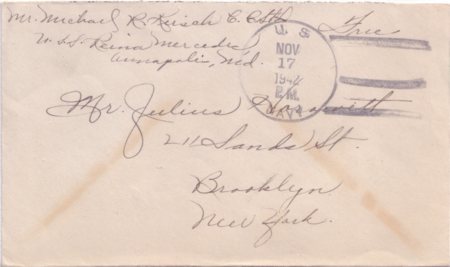 Mr. Michael R. Kirsch C. Cstd.
Free
U.S.S. Reina Mercedes,
Annapolis, Md.
U. S.
NOV
17
1942
P.M.
NAVY
Mr. Julius
211 Sands St.
Brooklyn
New York.